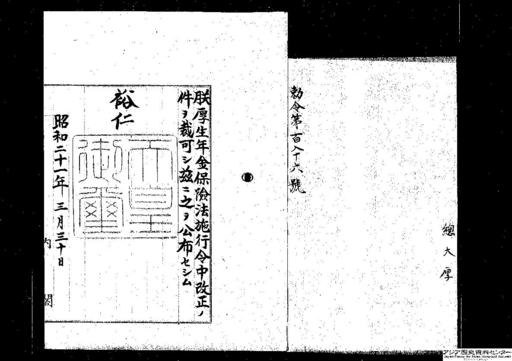 勅令第百八十六號
總大厚
朕厚生年金保險法施行令中改正ノ
件ヲ裁可シ茲ニ之ヲ公布セシム
裕仁
天皇御璽
昭和二十一年三月三十日
内閣
アジア歴史資料センター